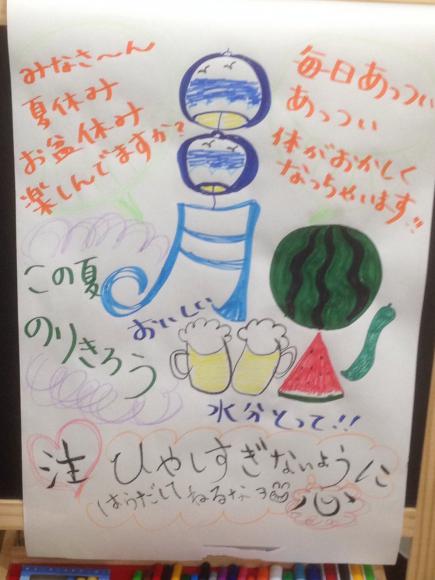 みなさ〜ん
夏休み
お盆休み
楽しんでますか?
毎日あっつい
あっつい
体がおかしく
なっちゃいます!!
8月
この夏
のりきろう
おいしい
水分とって!!
注 ひやしすぎないように
はらだしてねるなヨ
心